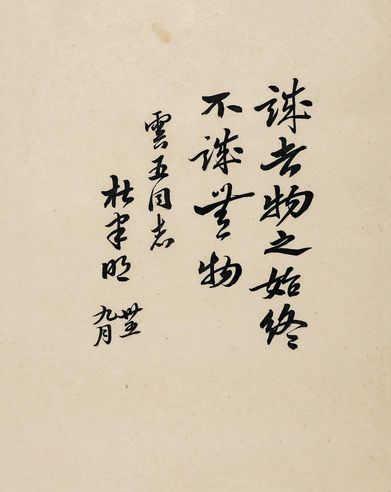 誠者物之始終
不誠無物
雲五同志
杜聿明
九月